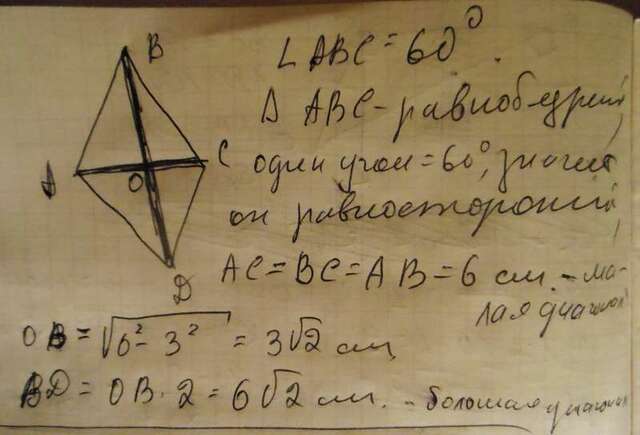 B
∠ABC = 60°.
Δ ABC - равнобедрений,
C
один угол = 60°, значит
A
O
он равносторонний,
AC = BC = AB = 6 см. - ма-
лая диагональ
D
OB = √6² - 3² = 3√2 см,
BD = OB · 2 = 6√2 см. - большая диагональ